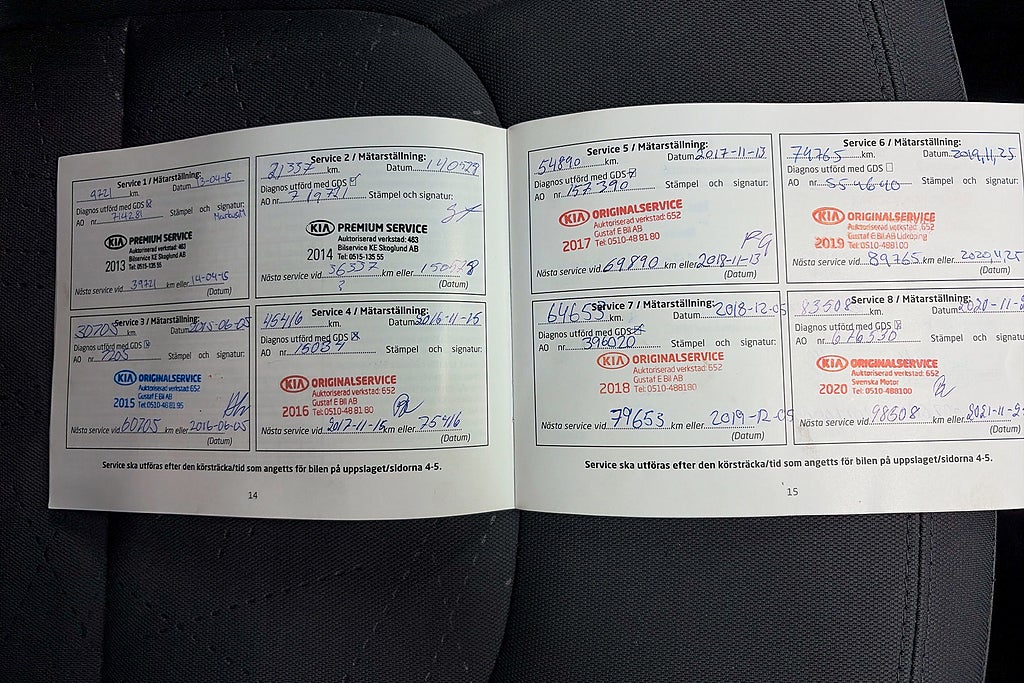 Service 1 / Mätarställning:
9721 km. Datum 13-04-15
Diagnos utförd med GDS
AO nr. 714281 Stämpel och signatur:
KIA PREMIUM SERVICE
Auktoriserad verkstad: 463
Bilservice KE Skoglund AB
2013 Tel: 0515-135 55
Nästa service vid 39721 km eller 14-04-15
(Datum)
Service 2 / Mätarställning:
21337 km. Datum 140529
Diagnos utförd med GDS
AO nr. Stämpel och signatur:
KIA PREMIUM SERVICE
Auktoriserad verkstad: 463
Bilservice KE Skoglund AB
2014 Tel: 0515-135 55
Nästa service vid 36337 km eller 150528
?
(Datum)
Service 3 / Mätarställning:
30705 km. Datum 2015-06-05
Diagnos utförd med GDS
AO nr. 7205 Stämpel och signatur:
KIA ORIGINALSERVICE
Auktoriserad verkstad: 652
Gustaf E Bil AB
2015 Tel: 0510-48 81 95
Nästa service vid 60705 km eller 2016-06-05
(Datum)
Service 4 / Mätarställning:
45416 km. Datum 2016-11-15
Diagnos utförd med GDS
AO nr. 15034 Stämpel och signatur:
KIA ORIGINALSERVICE
Auktoriserad verkstad: 652
Gustaf E Bil AB
2016 Tel: 0510-48 81 80
Nästa service vid 2017-11-15 km eller 75416
(Datum)
Service ska utföras efter den körsträcka/tid som angetts för bilen på uppslaget/sidorna 4-5.
14
Service 5 / Mätarställning:
54890 km. Datum 2017-11-13
Diagnos utförd med GDS
AO nr. 157390 Stämpel och signatur:
KIA ORIGINALSERVICE
Auktoriserad verkstad: 652
Gustaf E Bil AB
2017 Tel: 0510-48 81 80
Nästa service vid 69890 km eller 2018-11-13
(Datum)
Service 6 / Mätarställning:
74765 km. Datum 2019,11,25
Diagnos utförd med GDS
AO nr. 554640 Stämpel och signatur:
KIA ORIGINALSERVICE
Auktoriserad verkstad: 652
Gustaf E Bil AB Lidköping
2019 Tel: 0510-488100
Nästa service vid 89765 km eller 2020,11,25
(Datum)
Service 7 / Mätarställning:
64653 km. Datum 2018-12-05
Diagnos utförd med GDS
AO nr. 396020 Stämpel och signatur:
KIA ORIGINALSERVICE
Auktoriserad verkstad: 652
Gustaf E Bil AB
2018 Tel: 0510-488180
Nästa service vid 79653 km eller 2019-12-05
(Datum)
Service 8 / Mätarställning:
83508 km. Datum 2020-11-
Diagnos utförd med GDS
AO nr. 676530 Stämpel och signatur:
KIA ORIGINALSERVICE
Auktoriserad verkstad: 652
Svenska Motor
2020 Tel: 0510-488100
Nästa service vid 98508 km eller 2021-11-
(Datum)
Service ska utföras efter den körsträcka/tid som angetts för bilen på uppslaget/sidorna 4-5.
15